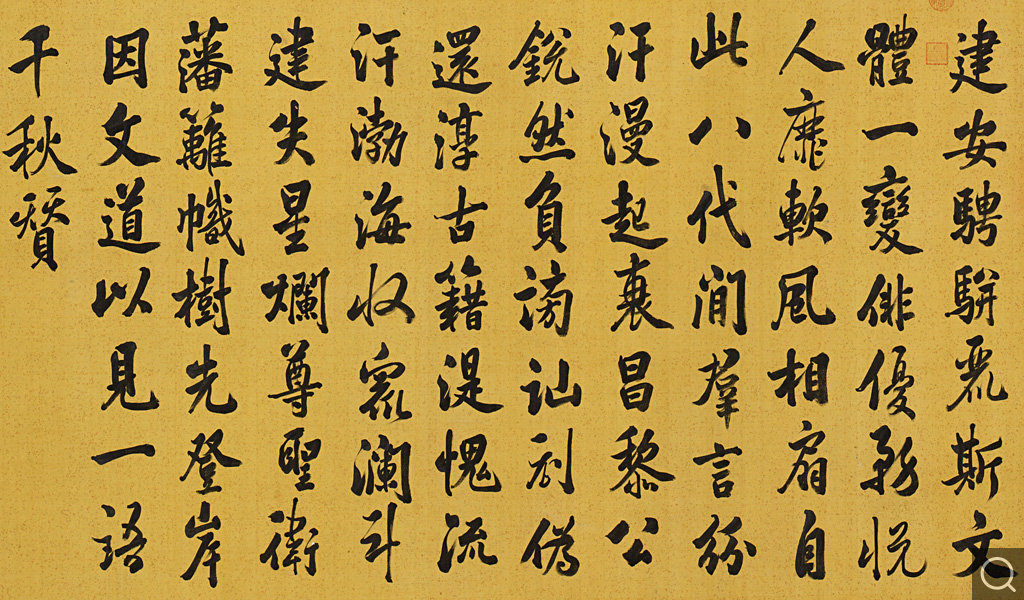 建安騁駢麗斯文
體一變俳優務悅
人靡軟風相扇自
此八代間羣言紛
汗漫起衰昌黎公
銳然負謗訕剗偽
還淳古籍湜愧流
汗渤海收衆瀾斗
建失星爛尊聖衛
藩籬幟樹先登岸
因文道以見一語
千秋贊